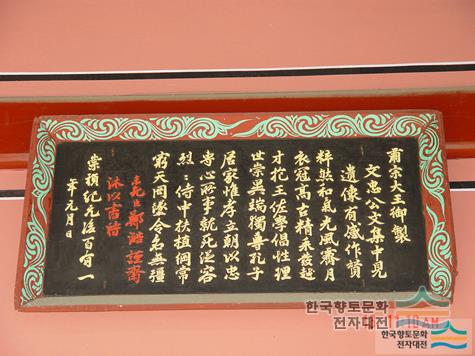 肅宗大王御製
文忠公文集中見
遺像有感作贊
粹然和氣光風霽月
衣冠高古精采發越
才抱王佐學倡性理
世崇異端獨尊孔子
居家惟孝立朝以忠
專心所事就死從容
烈〻侍中扶植綱常
窮天罔墜令名無疆
臣鄭 謹齋
沐以書
崇禎紀元後百有一
年元月日
한국향토문화
전자대전
한국향토문화
전자대전